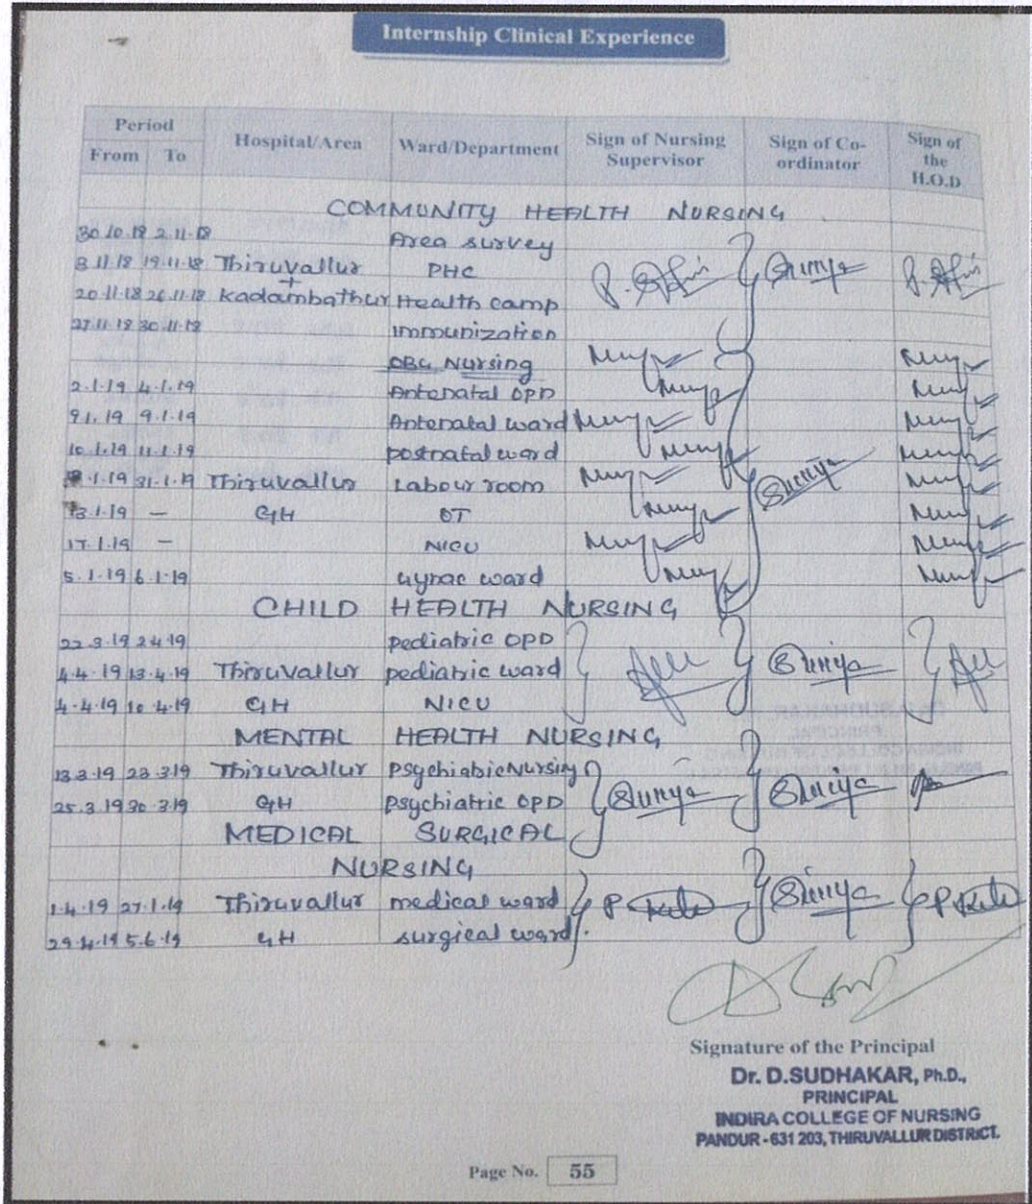 Internship Clinical Experience
Period
From To Hospital/Area Ward/Department Sign of Nursing Supervisor Sign of Co-ordinator Sign of the H.O.D
COMMUNITY HEALTH NURSING
30.10.18 2.11.18 Area survey
3.11.18 19.11.18 Thiruvallur PHC
+
20.11.18 26.11.18 Kadambathur Health camp
27.11.18 30.11.18 immunization
OBG Nursing
2.1.19 4.1.19 Antenatal OPD
9.1.19 9.1.19 Antenatal ward
10.1.19 11.1.19 postnatal ward
1.19 31.1.19 Thiruvallur Labour room
13.1.19 — GH OT
17.1.19 — NICU
5.1.19 6.1.19 Gynac ward
CHILD HEALTH NURSING
22.3.19 2.4.19 pediatric OPD
4.4.19 13.4.19 Thiruvallur pediatric ward
4.4.19 10.4.19 GH NICU
MENTAL HEALTH NURSING
13.3.19 23.3.19 Thiruvallur Psychiabic Nursing
25.3.19 30.3.19 GH psychiatric OPD
MEDICAL SURGICAL
NURSING
1.4.19 27.1.19 Thiruvallur medical ward
29.4.19 5.6.19 GH surgical ward.
Signature of the Principal
Dr. D.SUDHAKAR, Ph.D.,
PRINCIPAL
INDIRA COLLEGE OF NURSING
PANDUR - 631 203, THIRUVALLUR DISTRICT.
Page No. 55